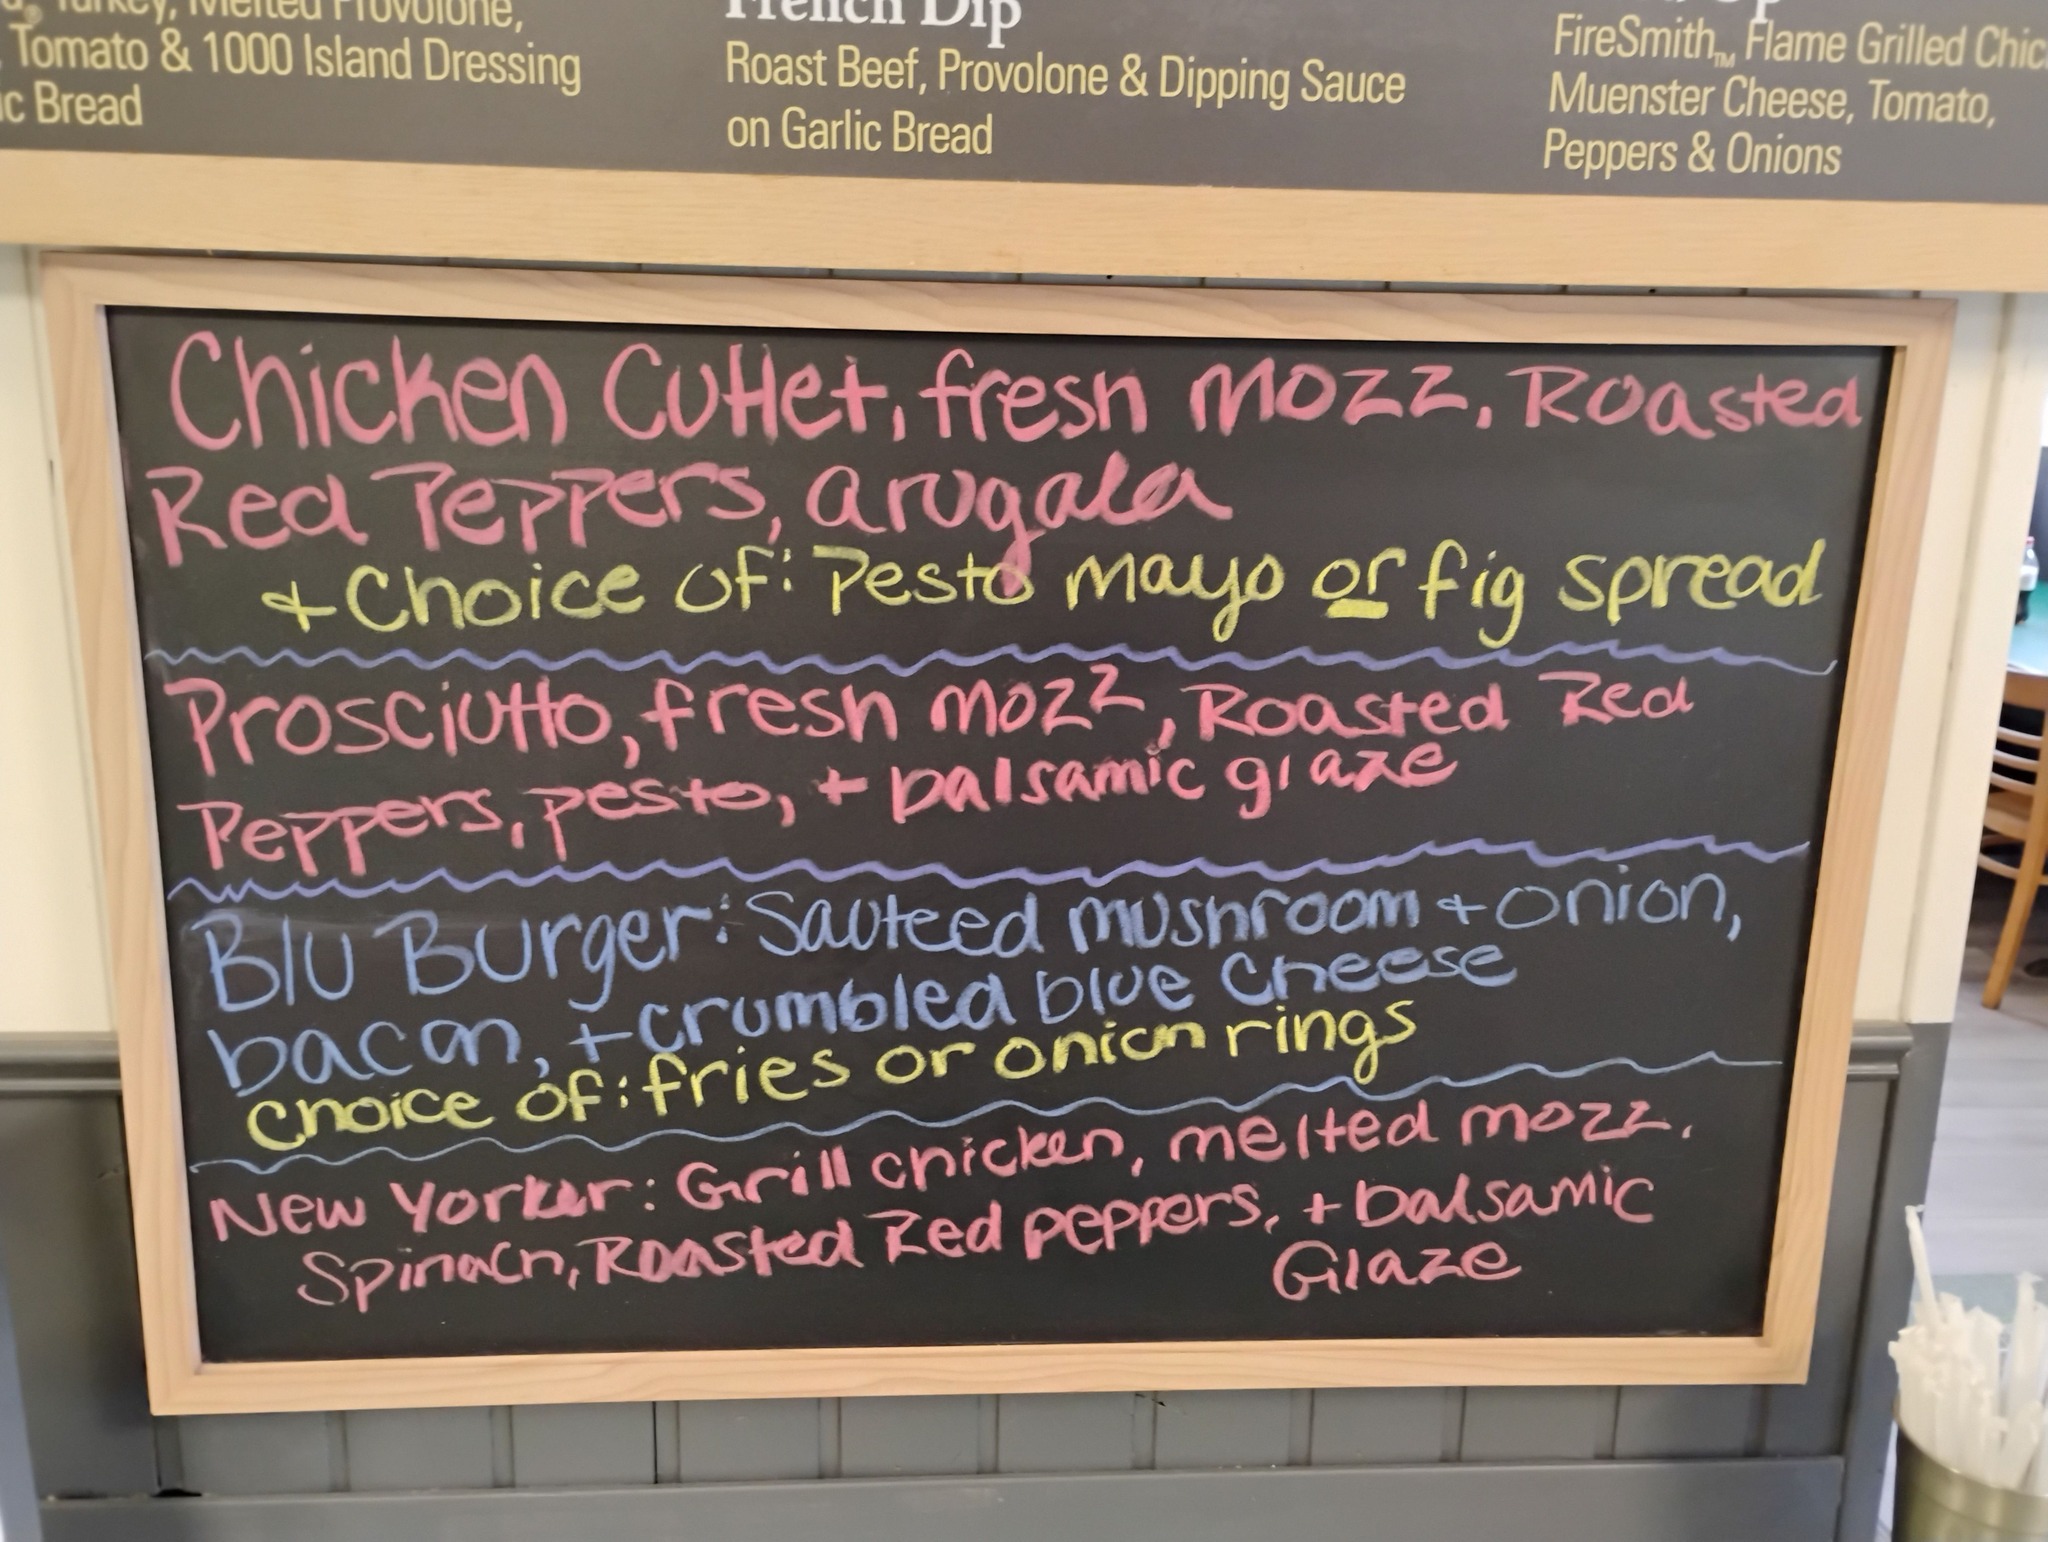 Turkey, Melted Provolone,
Tomato & 1000 Island Dressing
Bread
French Dip
Roast Beef, Provolone & Dipping Sauce
on Garlic Bread
FireSmith™ Flame Grilled
Muenster Cheese, Tomato,
Peppers & Onions
Chicken Cutlet, fresh mozz, Roasted
Red Peppers, arugala
+ Choice of: Pesto mayo or fig spread
Prosciutto, fresh mozz, Roasted Red
Peppers, pesto, + balsamic glaze
Blu Burger: Sauteed mushroom + onion,
bacon, + crumbled blue cheese
Choice of: fries or onion rings
New Yorker: Grill chicken, melted mozz.
Spinach, Roasted Red peppers, + balsamic
Glaze